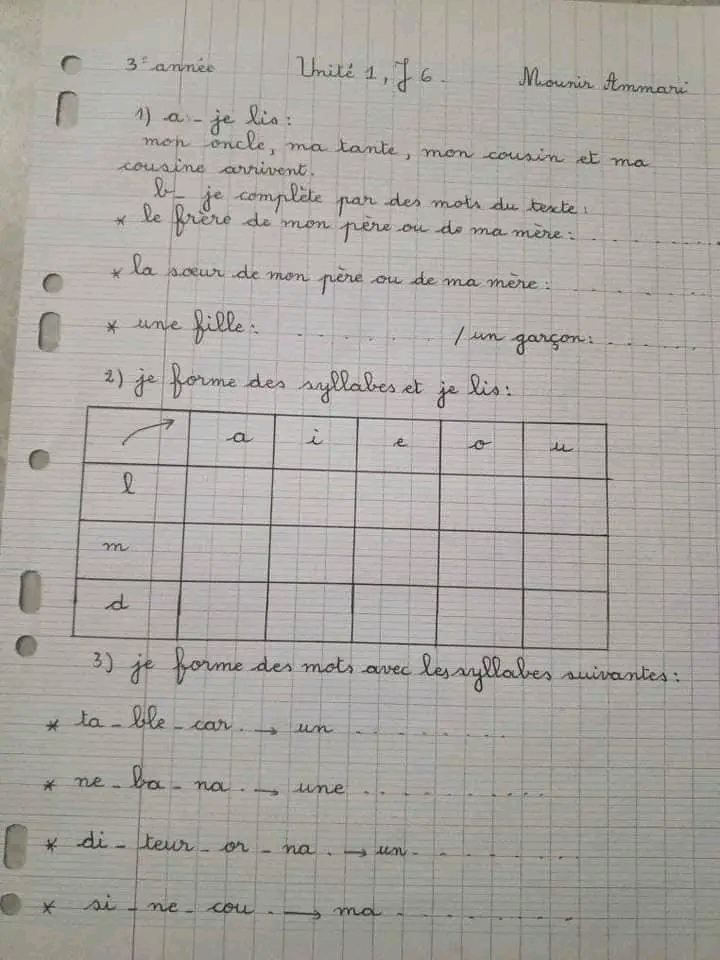 3e année Unité 1, J 6. Mounir Ammari
1) a - je lis :
mon oncle, ma tante, mon cousin et ma
cousine arrivent.
b - je complète par des mots du texte :
* le frère de mon père ou de ma mère : . . . . . . . .
* la sœur de mon père ou de ma mère : . . . . . . . .
* une fille : . . . . . . . / un garçon : . . . . . .
2) je forme des syllabes et je lis :
a i e o u
l
m
d
3) je forme des mots avec les syllabes suivantes :
* ta - ble - car . → un . . . . . . . .
* ne - ba - na . → une . . . . . . . . . .
* di - teur - or - na . → un . . . . . . . . .
* si - ne - cou . → ma . . . . . . . . .